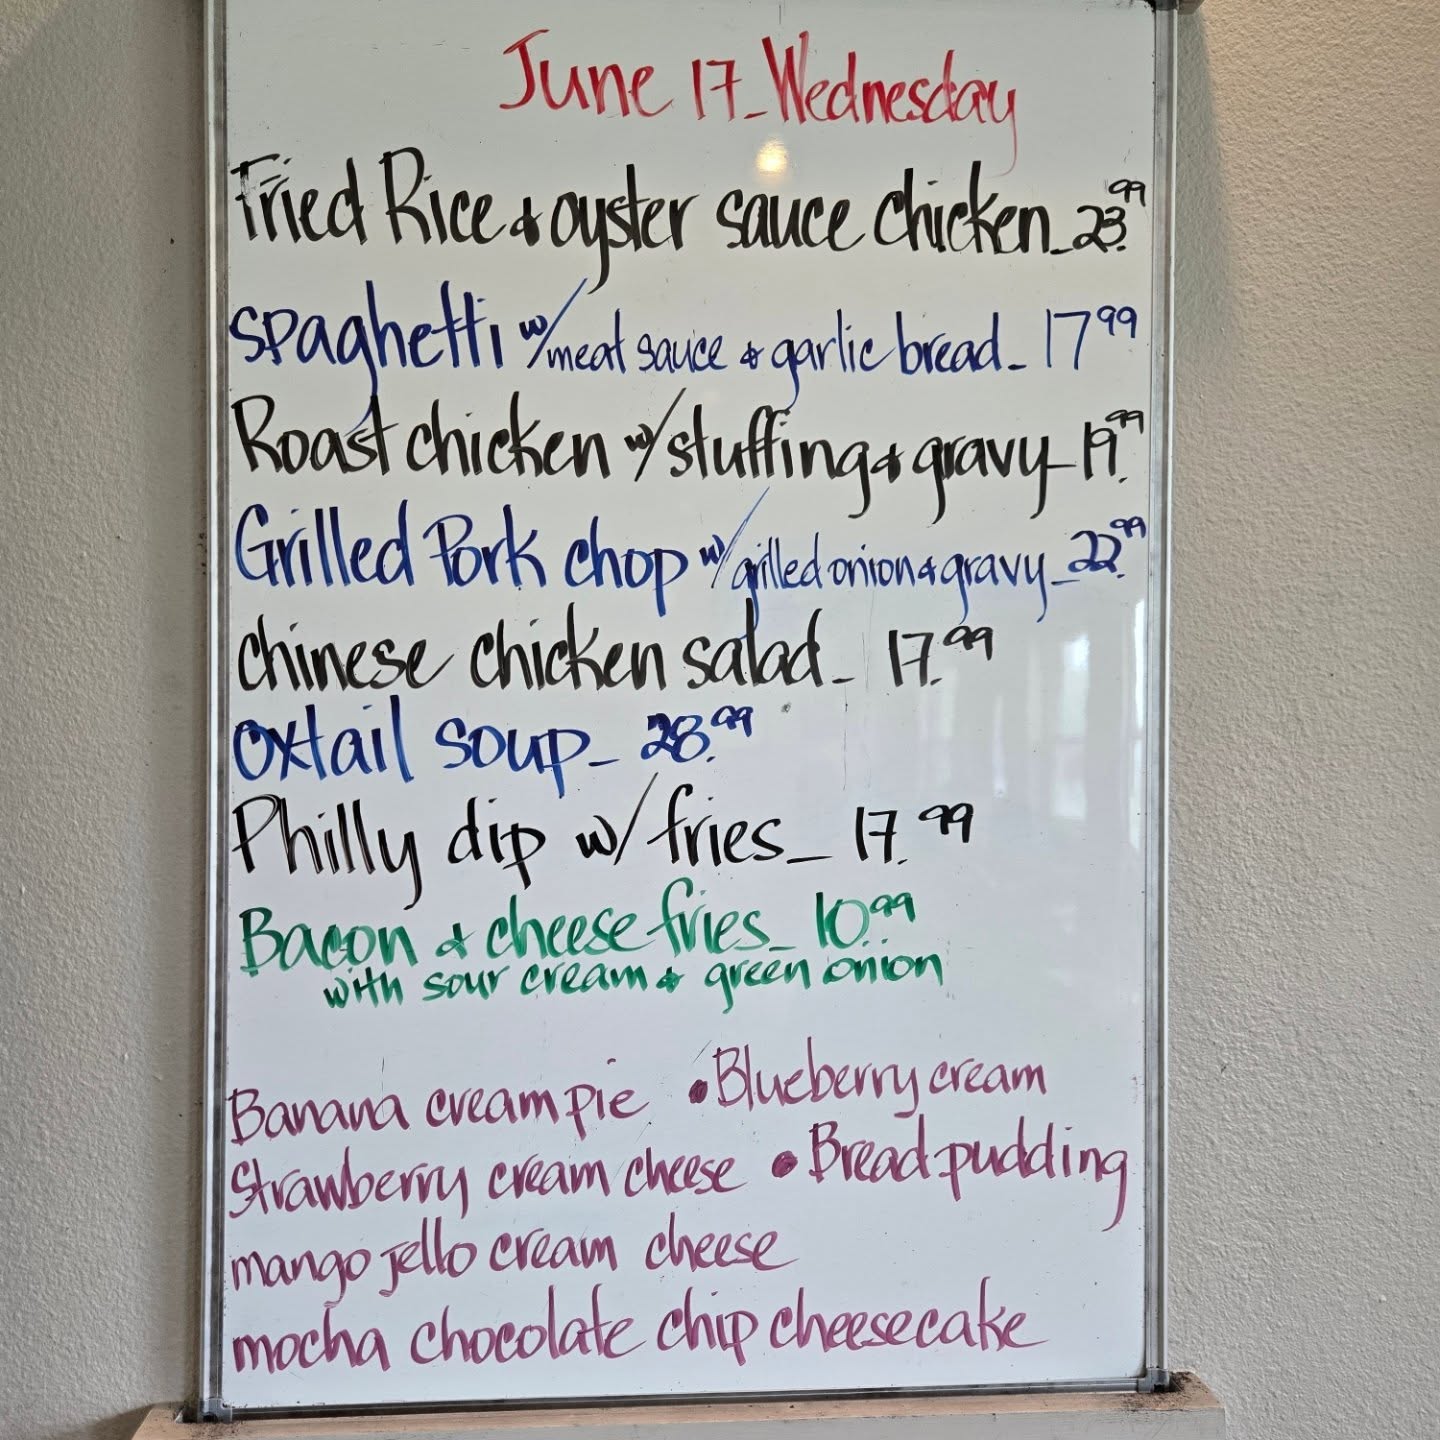 June 17_Wednesday
Fried Rice & oyster sauce chicken_23.99
spaghetti w/meat sauce & garlic bread_17 99
Roast chicken w/stuffing & gravy_19.99
Grilled Pork chop w/grilled onion & gravy_22.99
chinese chicken salad_ 17.99
oxtail soup_ 28.99
Philly dip w/fries_ 17.99
Bacon & cheese fries_ 10.99
with sour cream & green onion
Banana cream pie • Blueberry cream
Strawberry cream cheese • Bread pudding
mango jello cream cheese
mocha chocolate chip cheesecake